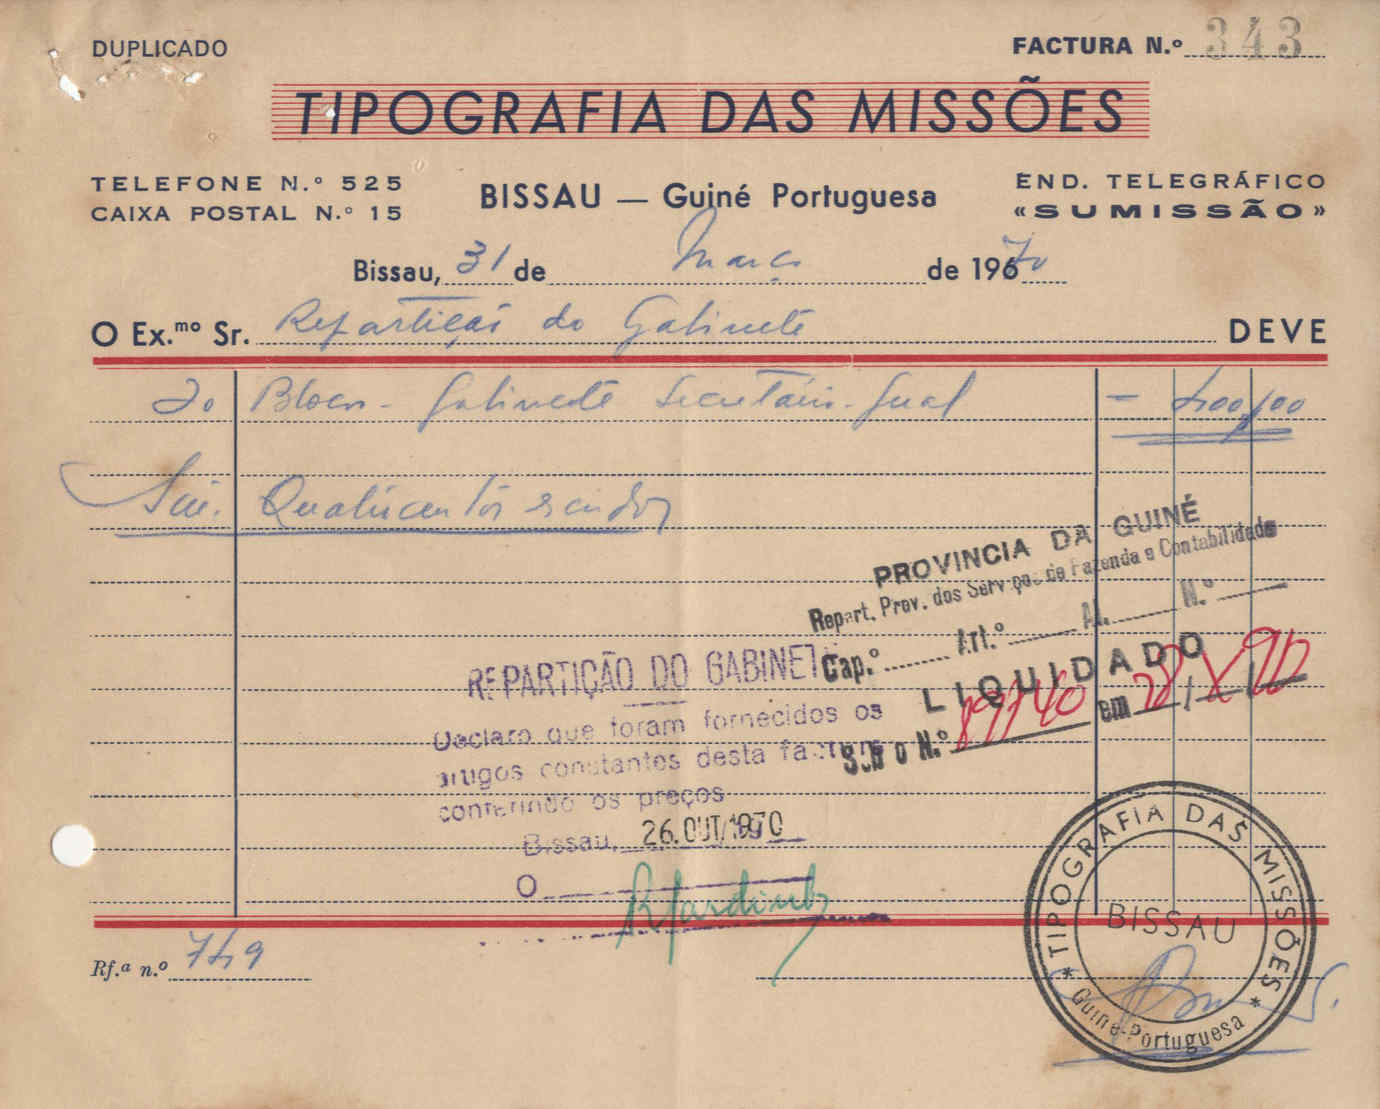 DUPLICADO
FACTURA N.º 343
TIPOGRAFIA DAS MISSÕES
TELEFONE N.º 525
CAIXA POSTAL N.º 15
BISSAU — Guiné Portuguesa
END. TELEGRÁFICO
«SUMISSÃO»
Bissau, 31 de Março de 1970
O Ex.mo Sr. Repartição do Gabinete DEVE
20 Blocos - Gabinete Secretário-Geral — 400,00
São. Quatrocentos escudos
PROVINCIA DA GUINÉ
Repart. Prov. dos Serviços de Fazenda e Contabilidade
Cap.º Art.º Al. N.º
LIQUIDADO
Sob o N.º em 28/X/970
REPARTIÇÃO DO GABINETE
Declaro que foram fornecidos os
artigos constantes desta factura
conferindo os preços
Bissau, 26.OUT.1970
O
Rf.ª n.º 749
TIPOGRAFIA DAS MISSÕES
BISSAU
* Guiné-Portuguesa *